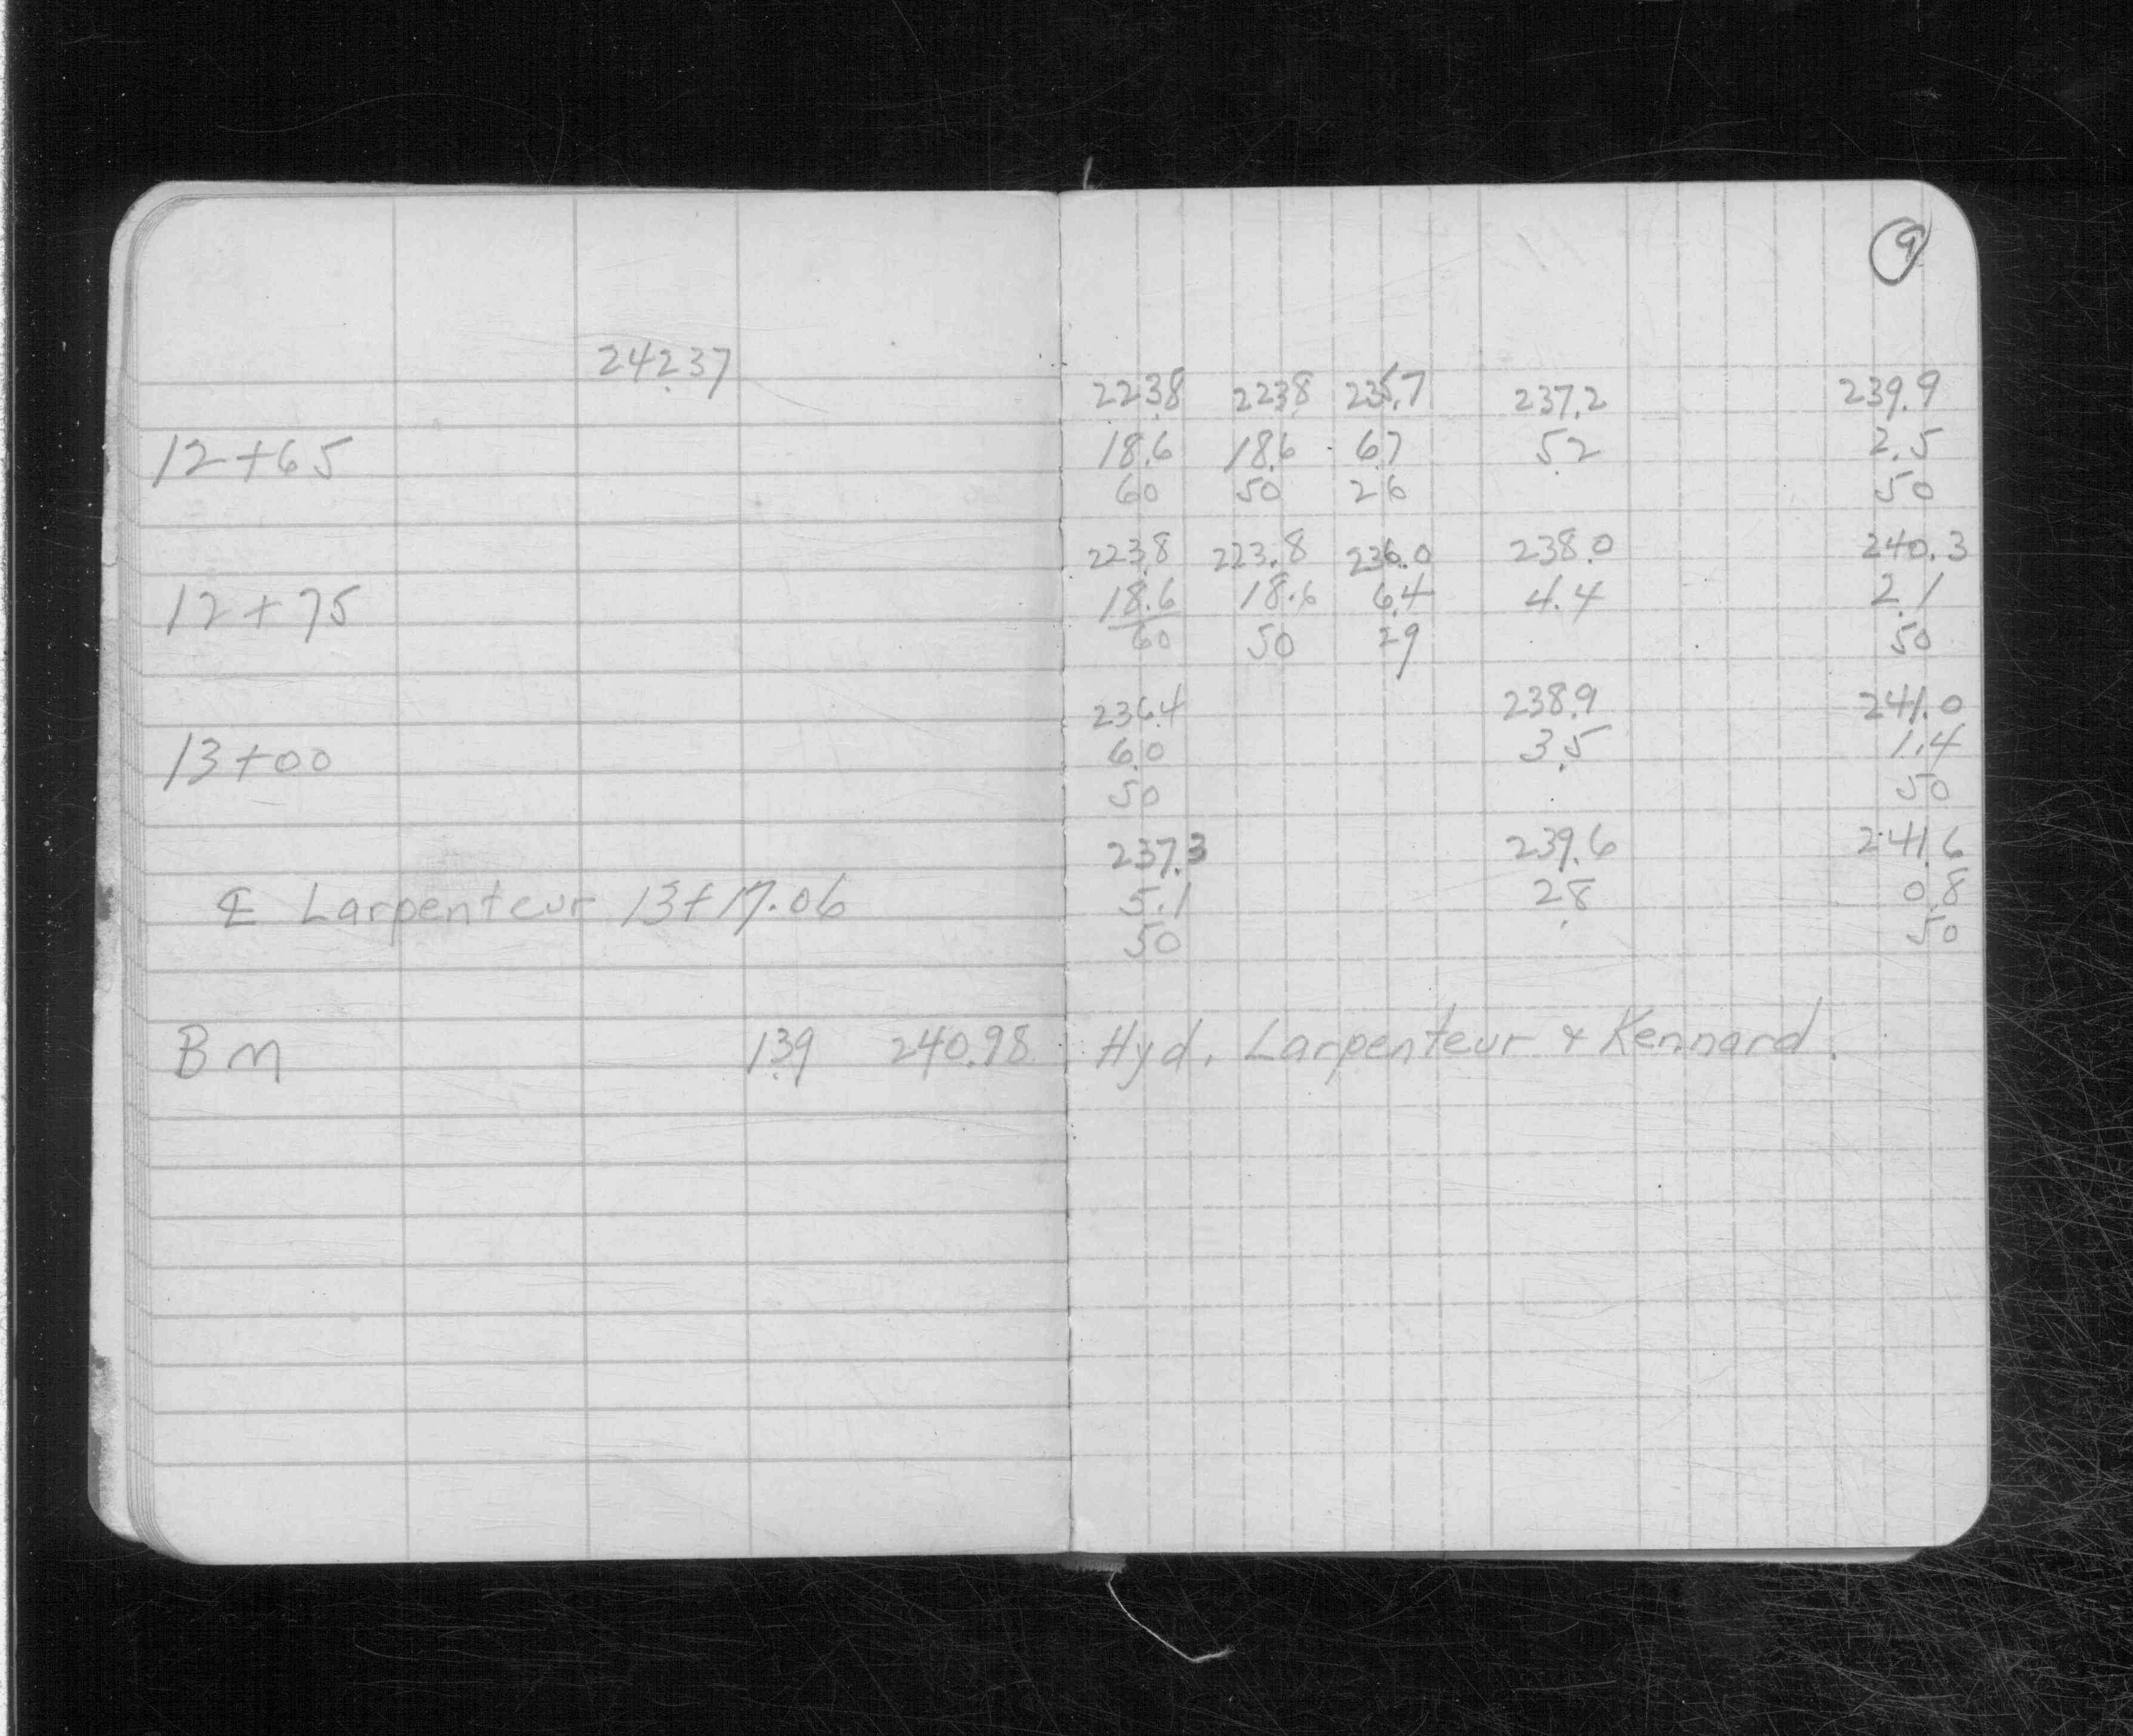 9
242.37
223.8 223.8 235.7 237.2 239.9
12+65 18.6 18.6 6.7 5.2 2.5
60 50 26 50
223.8 223.8 236.0 238.0 240.3
12+75 18.6 18.6 6.4 4.4 2.1
60 50 29 50
236.4 238.9 241.0
13+00 6.0 3.5 1.4
50 50
237.3 239.6 241.6
℄ Larpenteur 13+17.06 5.1 2.8 0.8
50 50
BM 1.39 240.98 Hyd. Larpenteur & Kennard.